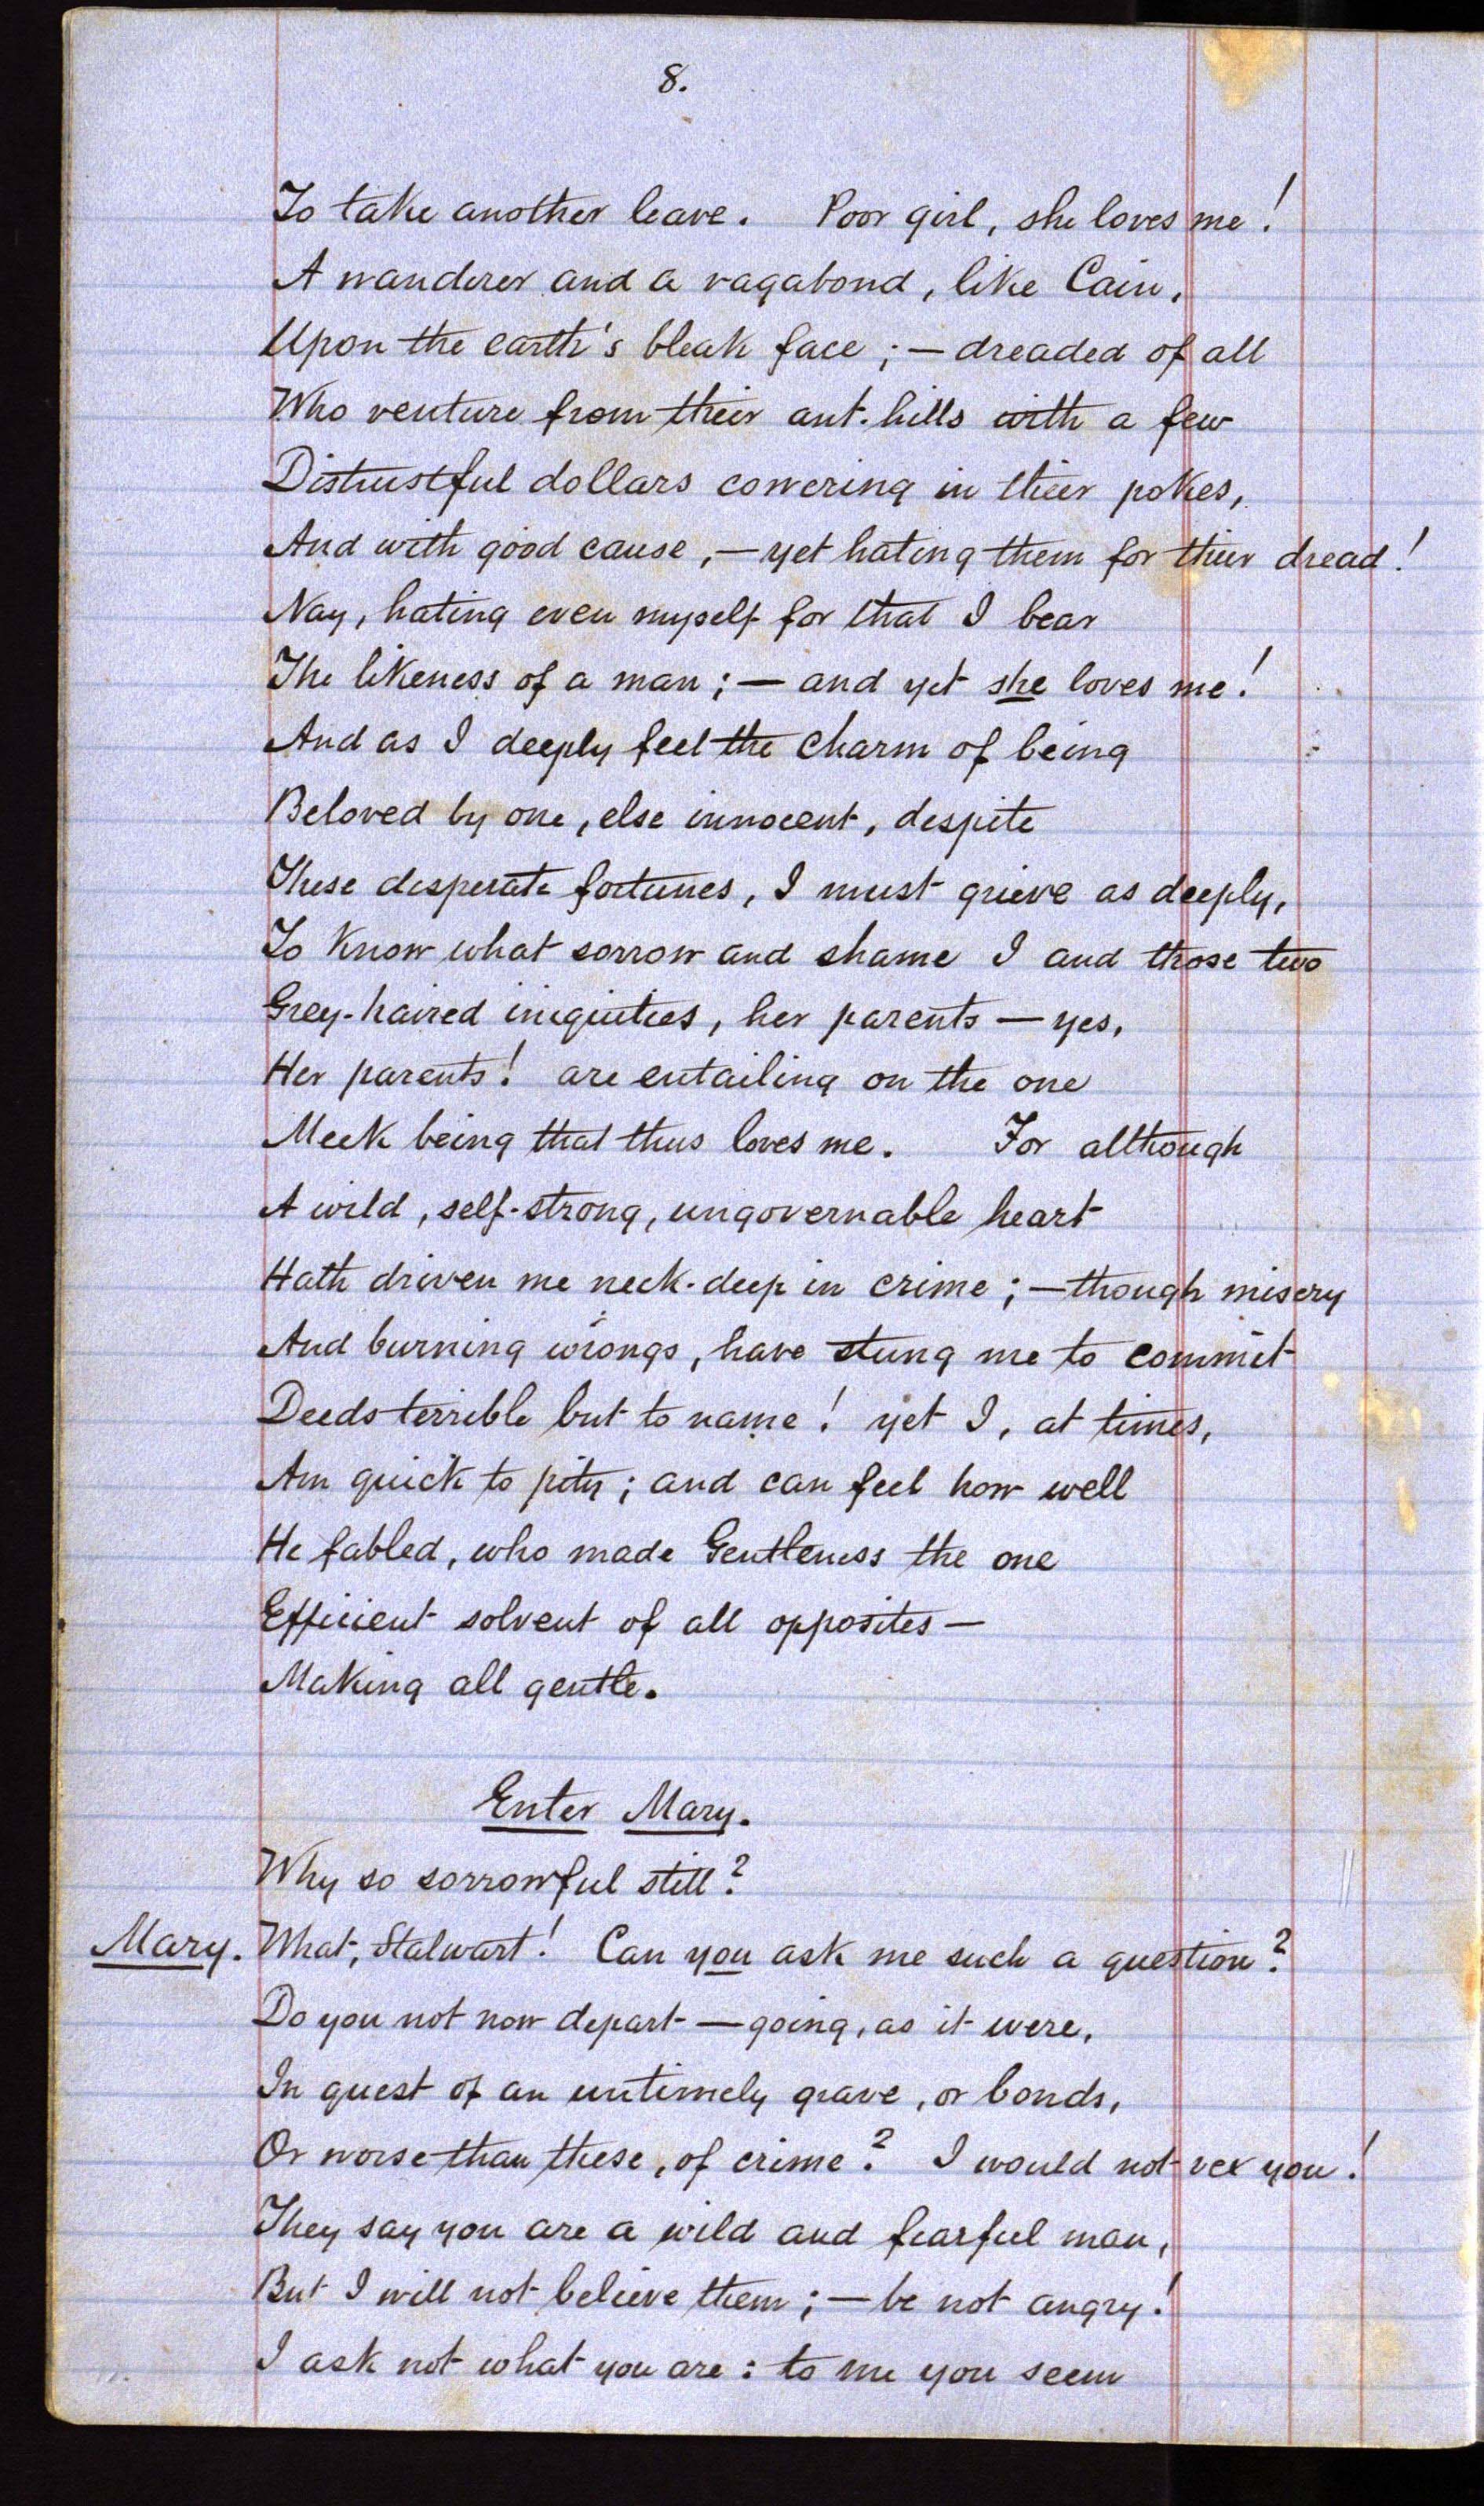 8.
To take another leave. Poor girl, she loves me!
A wanderer and a vagabond, like Cain,
Upon the earth's bleak face; — dreaded of all
Who venture from their ant-hills with a few
Distrustful dollars cowering in their pokes,
And with good cause, — yet hating them for their dread!
Nay, hating even myself for that I bear
The likeness of a man; — and yet she loves me!
And as I deeply feel the charm of being
Beloved by one, else innocent, despite
These desperate fortunes, I must grieve as deeply,
To know what sorrow and shame I and those two
Grey-haired iniquities, her parents — yes,
Her parents! are entailing on the one
Meek being that thus loves me. For although
A wild, self-strong, ungovernable heart
Hath driven me neck-deep in crime; — though misery
And burning wrongs, have stung me to commit
Deeds terrible but to name! yet I, at times,
Am quick to pity; and can feel how well
He fabled, who made Gentleness the one
Efficient solvent of all opposites —
Making all gentle.
Enter Mary.
Why so sorrowful still?
Mary. What, Stalwart! Can you ask me such a question?
Do you not now depart — going, as it were,
In quest of an untimely grave, or bonds,
Or worse than these, of crime? I would not vex you!
They say you are a wild and fearful man,
But I will not believe them; — be not angry!
I ask not what you are: to me you seem